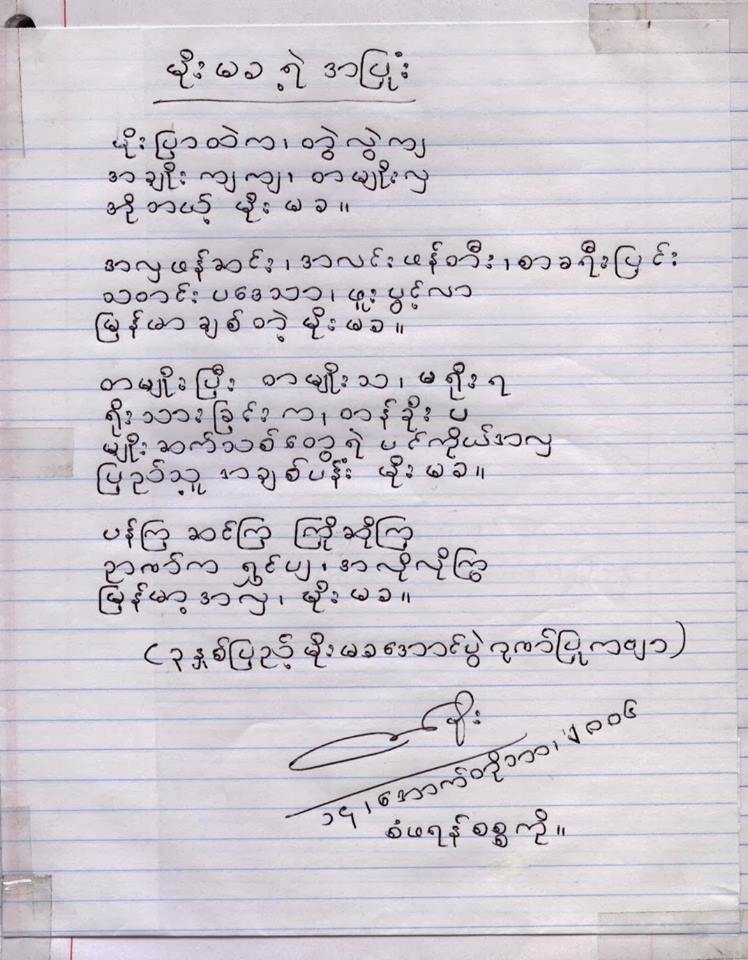 မိုးမခရဲ့ အပြုံး
မိုးပြာထဲက၊ တွဲလွဲကျ
အချိုးကျကျ၊ တမျိုးလှ
အဲ့ဒါတယ့် မိုးမခ။
အလှဖန်ဆင်း၊ အလင်းဖန်တီး၊ စာခရီးပြင်း
သတင်းပဒေသာ၊ ဖူးပွင့်လာ
မြန်မာချစ်တဲ့ မိုးမခ။
တမျိုးပြီး တမျိုးသာ၊ မရိုးရ
ရိုးသားခြင်းက၊ တန်ခိုး ပ
မျိုးဆက်သစ်တွေရဲ့ ပင်ကိုယ်အလှ
ပြည်သူ့ အချစ်ပန်း မိုးမခ။
ပန်ကြ ဆင်ကြ ကြိုဆိုကြ
ဉာဏ်က ရွှင်ပျ၊ အလိုလိုကြွ
မြန်မာ့အလှ၊ မိုးမခ။
(၃နှစ်ပြည့် မိုးမခအောင်ပွဲ ဂုဏ်ပြုကဗျာ)
မိုး
၁၄၊ အောက်တိုဘာ၊ ၂၀၀၆
စံဖရန်စစ္စကို။